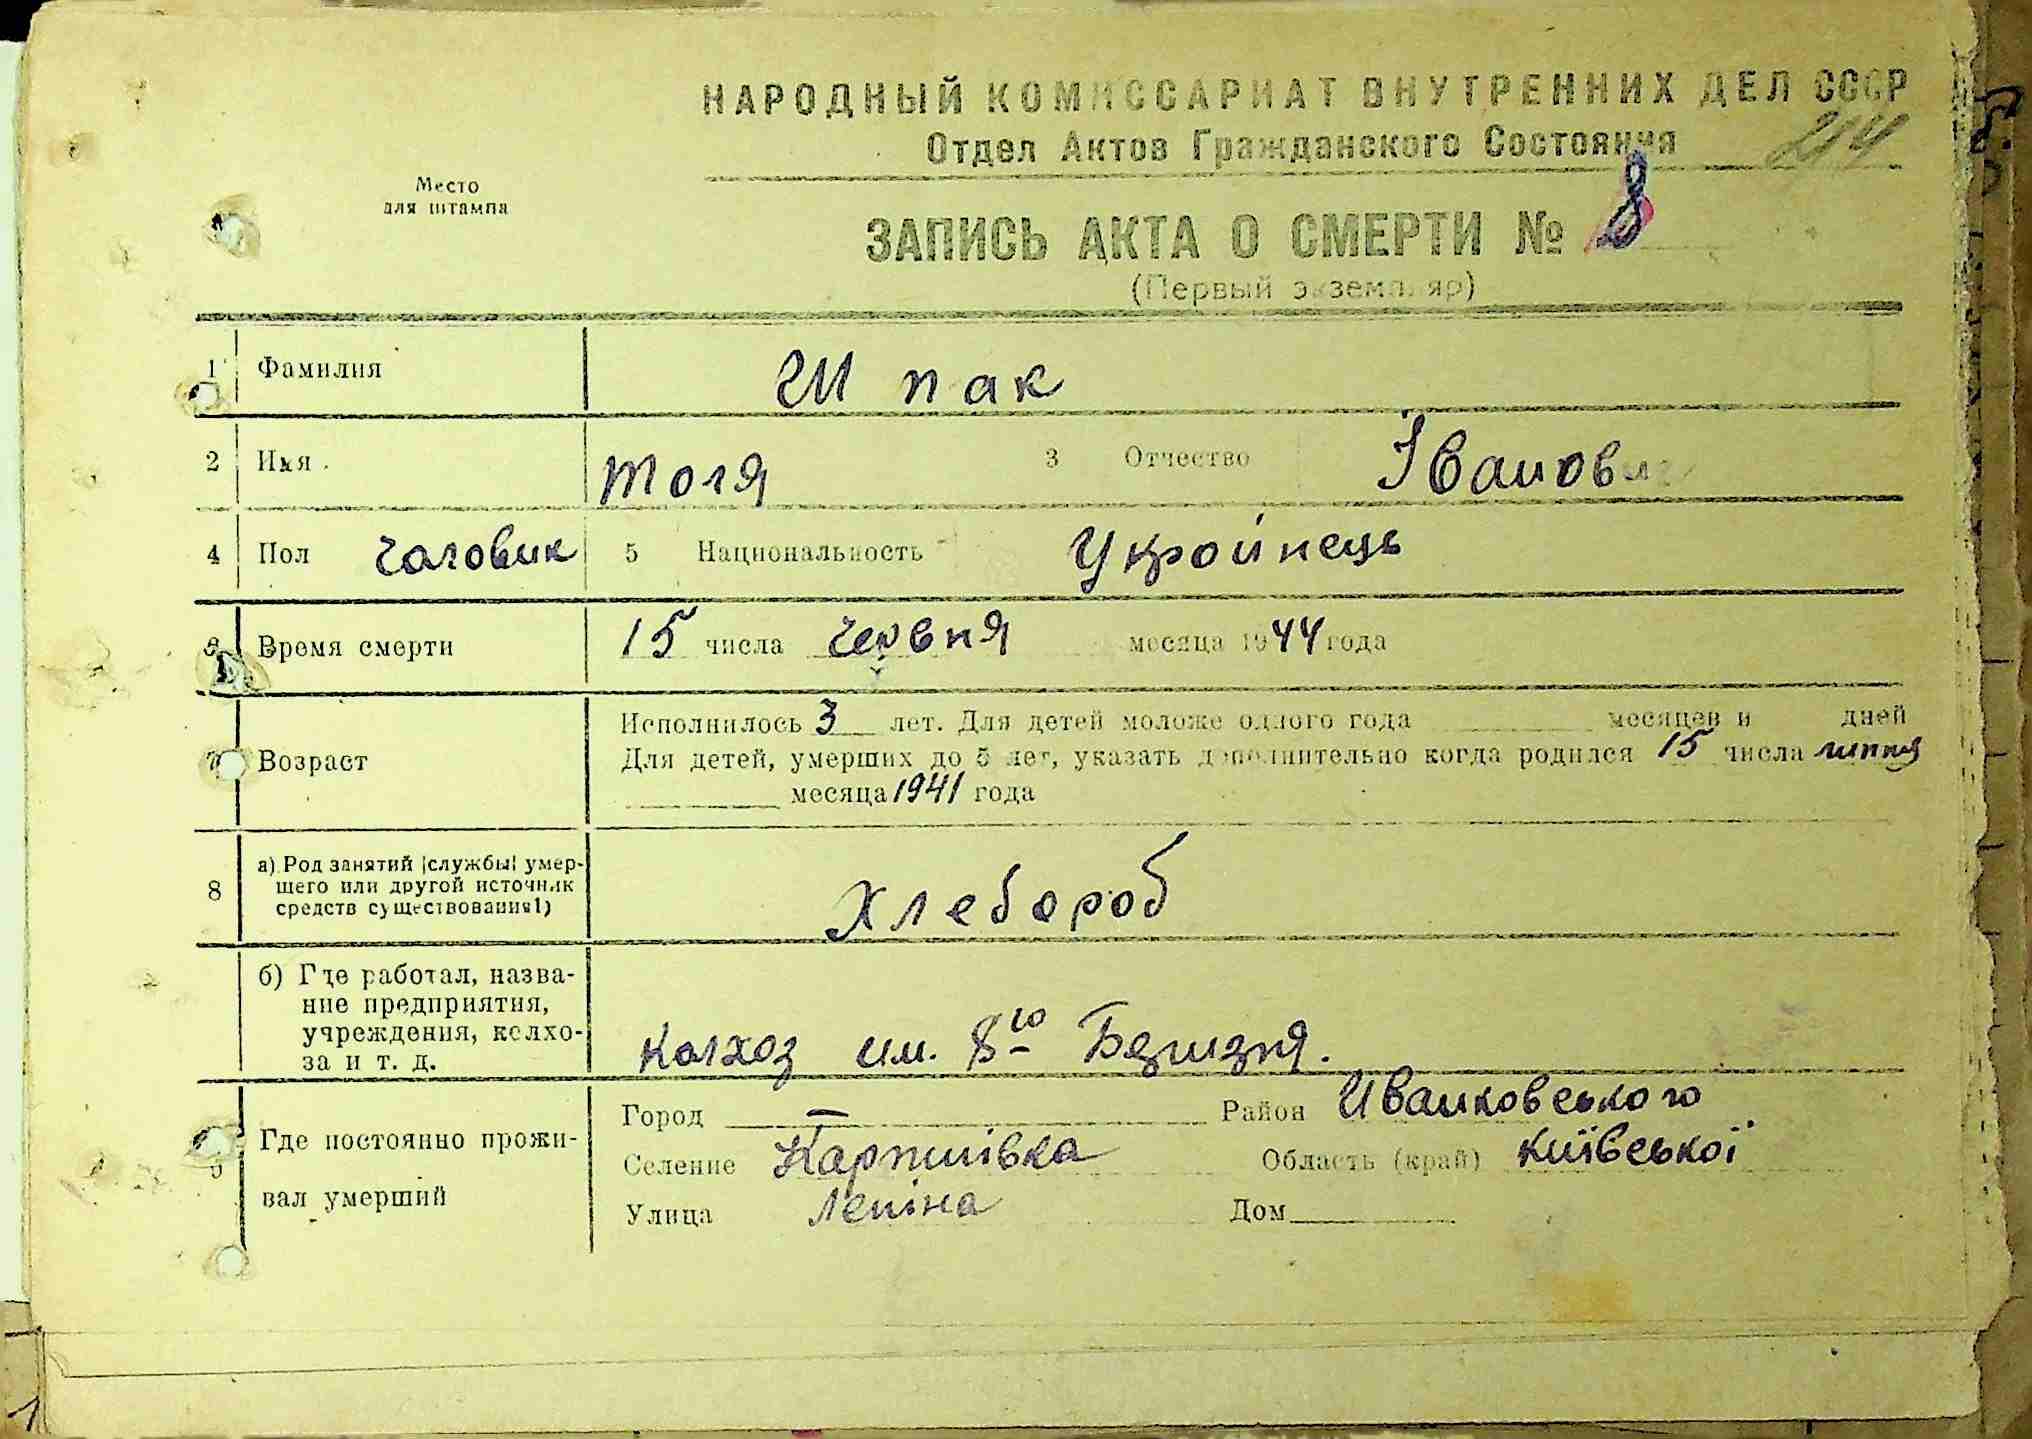 НАРОДНЫЙ КОМИССАРИАТ ВНУТРЕННИХ ДЕЛ СССР
Отдел Актов Гражданского Состояния
214
Место
для штампа
ЗАПИСЬ АКТА О СМЕРТИ № 8
(Первый экземпляр)
1 Фамилия Шпак
2 Имя Толя 3 Отчество Іванович
4 Пол чоловик 5 Национальность Укройнець
6 Время смерти 15 числа червня месяца 1944 года
7 Возраст Исполнилось 3 лет. Для детей моложе одного года месяцев и дней
Для детей, умерших до 5 лет, указать дополнительно когда родился 15 числа липня
месяца 1941 года
8 а) Род занятий |службы| умер-
шего или другой источник
средств существования1)
Хлебороб
б) Где работал, назва-
ние предприятия,
учреждения, колхо-
за и т. д.
Колхоз им. 8го Березня.
9 Где постоянно прожи-
вал умерший
Город — Район Иванковського
Селение Карпилівка Область (край) Київської
Улица Леніна Дом